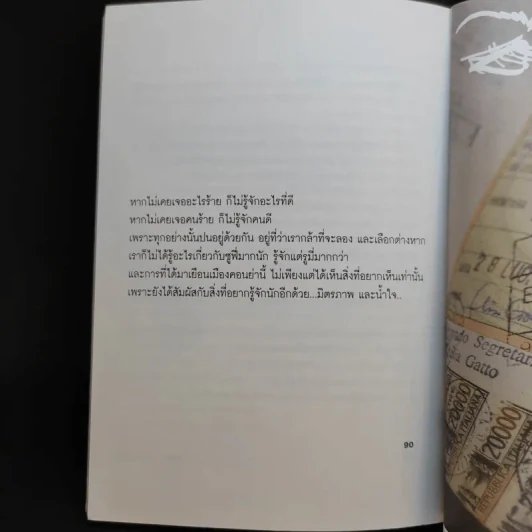 หากไม่เคยเจออะไรร้าย ก็ไม่รู้จักอะไรที่ดี
หากไม่เคยเจอคนร้าย ก็ไม่รู้จักคนดี
เพราะทุกอย่างนั้นปนอยู่ด้วยกัน อยู่ที่ว่าเรากล้าที่จะลอง และเลือกต่างหาก
เราก็ไม่ได้รู้อะไรเกี่ยวกับซูฟี่มากนัก รู้จักแต่รูมี่มากกว่า
และการที่ได้มาเยือนเมืองคอนย่านี้ ไม่เพียงแต่ได้เห็นสิ่งที่อยากเห็นเท่านั้น
เพราะยังได้สัมผัสกับสิ่งที่อยากรู้จักนักอีกด้วย...มิตรภาพ และน้ำใจ..
90
Segretar
Gatto
20000
ITALIANA
20000
REPUBBLICA ITALIANA